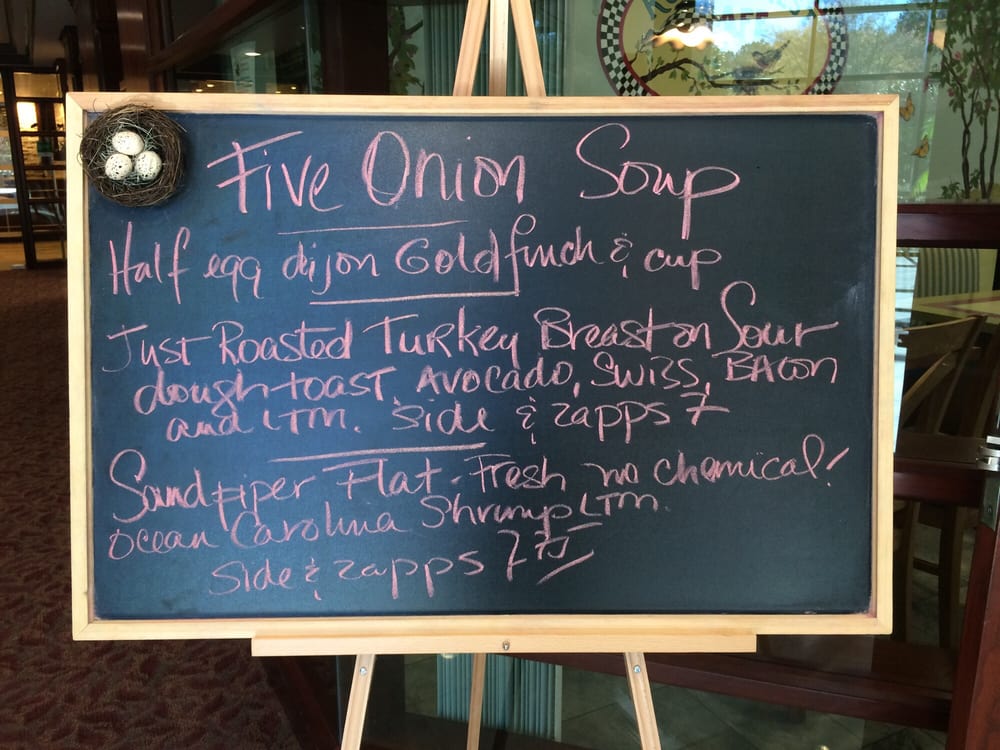 Five Onion Soup
Half egg dijon Goldfinch & cup
Just Roasted Turkey Breast on Sour
dough toast, Avocado, Swiss, BACON
and LTM. Side & zapps 7
Sandpiper Flat - Fresh no chemical!
Ocean Carolina Shrimp LTM.
Side & zapps 7 75